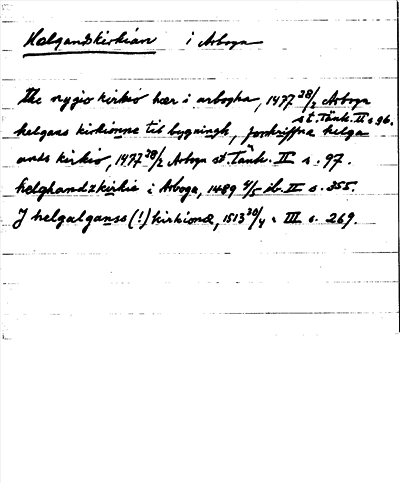 Helgandskirkian i Arboga
the nygio kirkio hær i arbogha, 1477 28/2 Arboga
st. Tänk. II s. 96.
helgans kirkionne til bygningh, forskriffna helga
ands kirkio, 1477 28/2 Arboga st. Tänk. II s. 97.
helghandzkirkio i Arboga, 1489 4/5 ib. II s. 355.
J helgalganss (!) kirkionæ, 1513 30/4 " III s. 269.